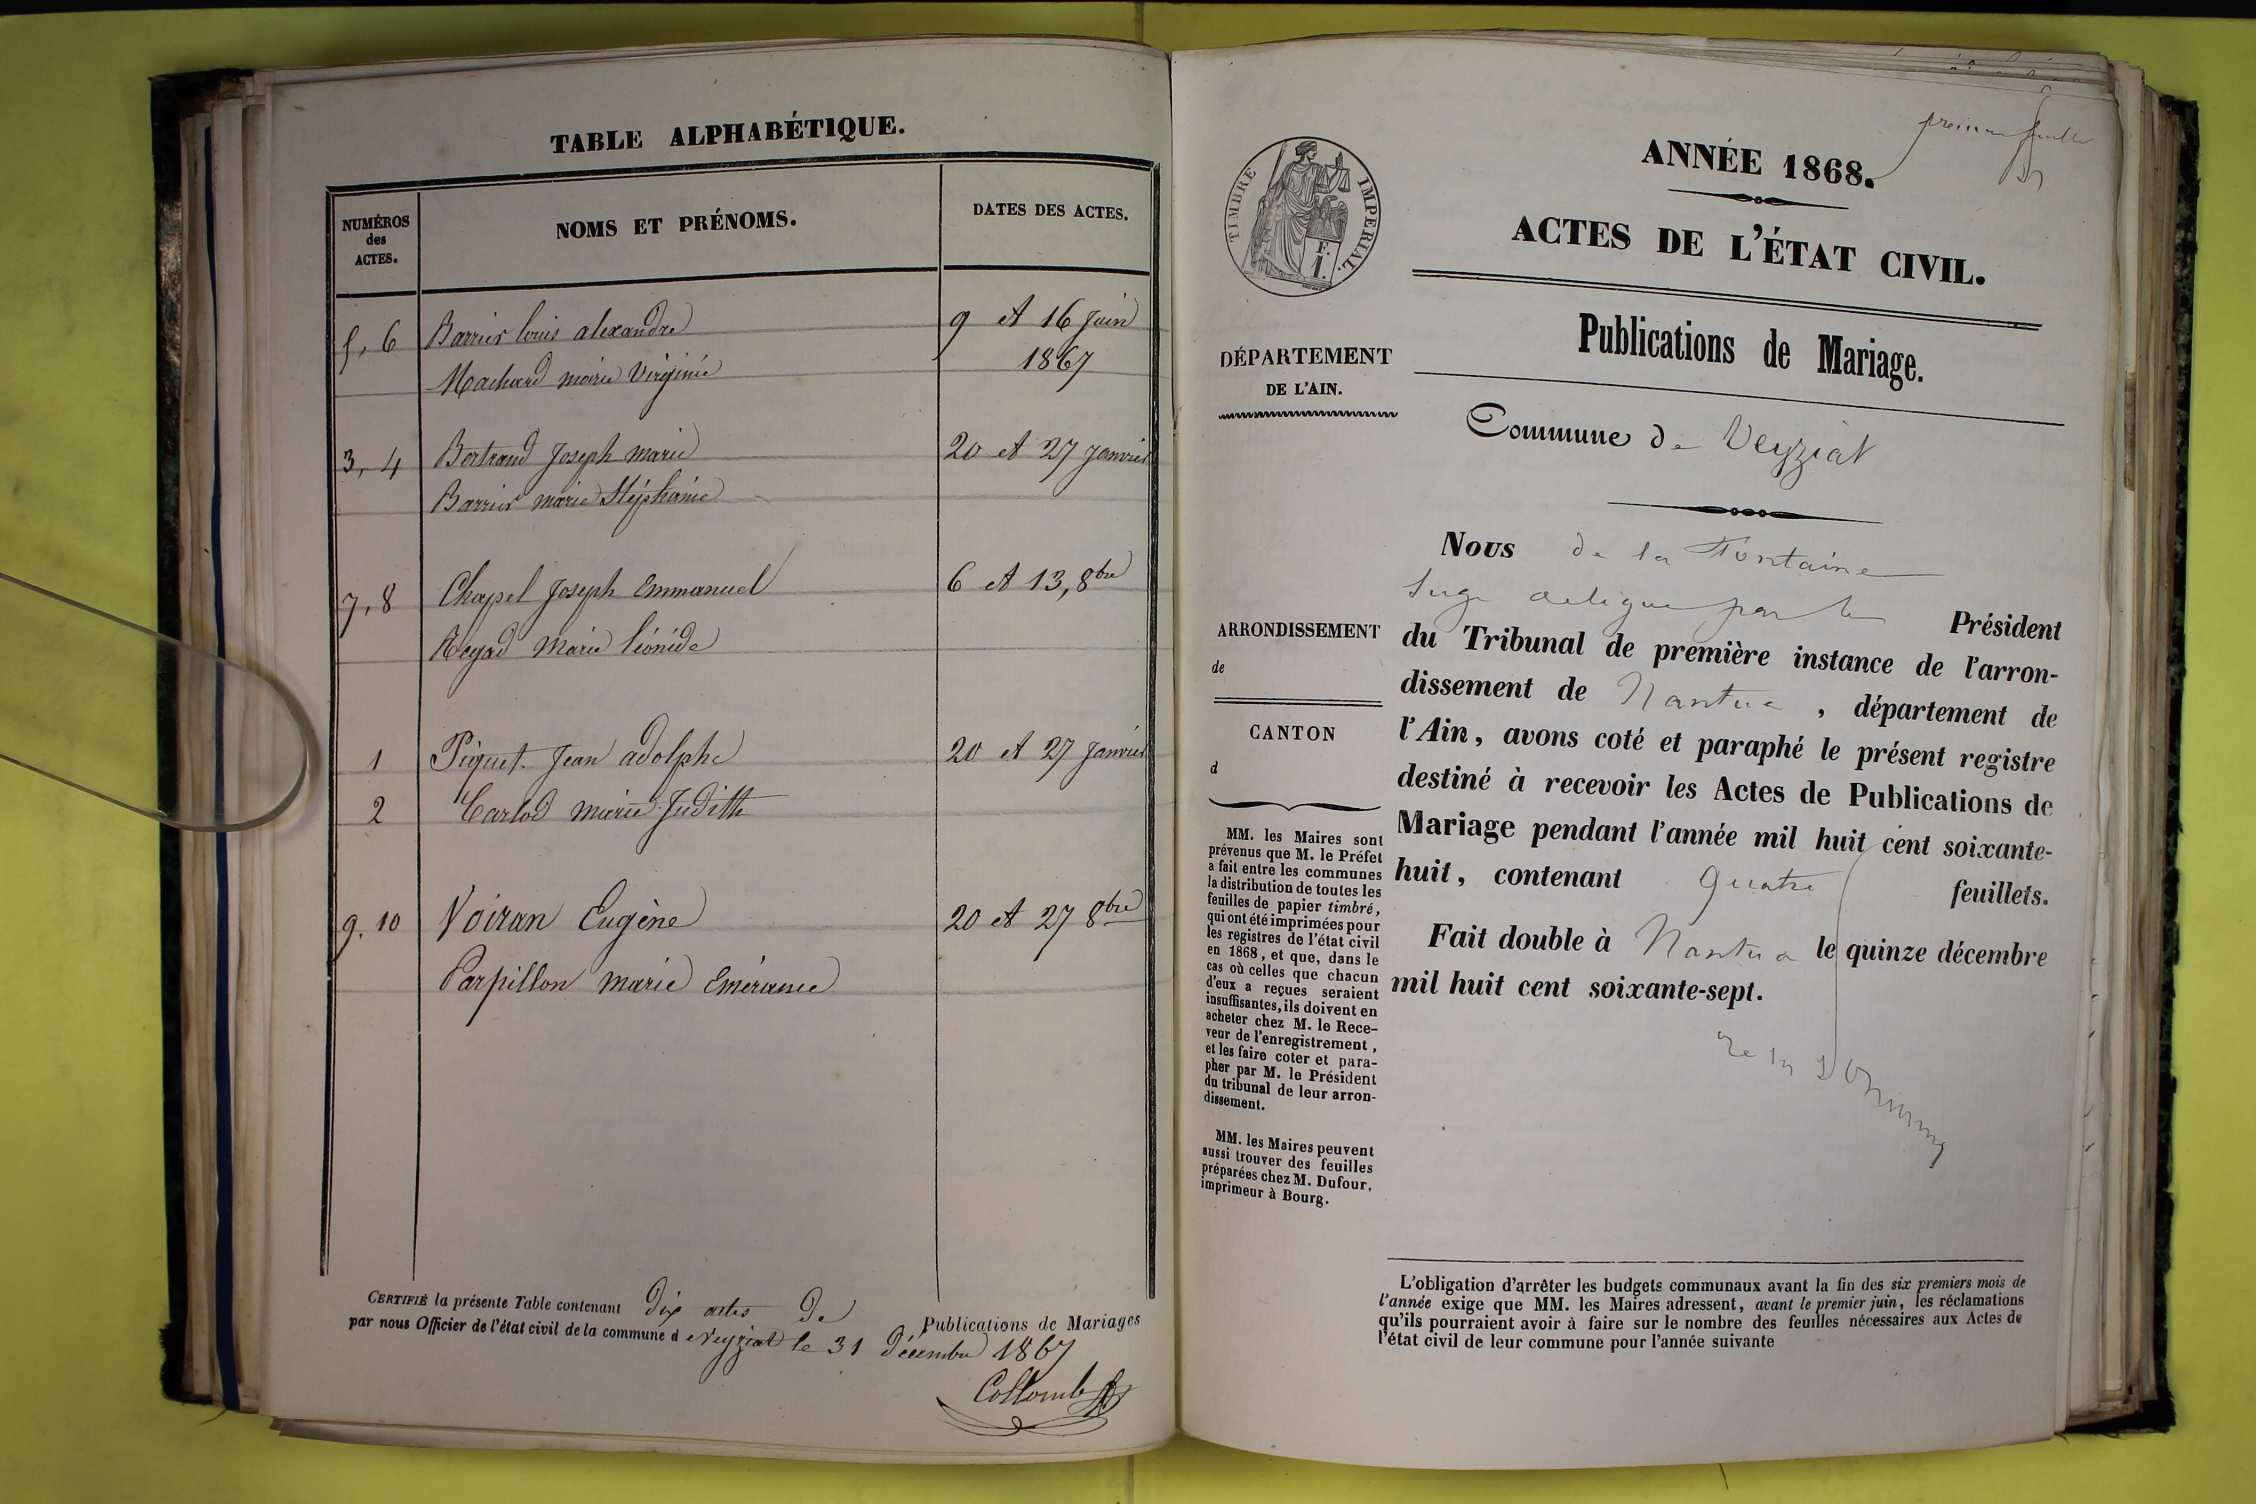 TABLE ALPHABÉTIQUE.
NUMÉROS
des
ACTES.
NOMS ET PRÉNOMS.
DATES DES ACTES.
5, 6 Barrier louis alexandre 9 et 16 Juin
Machard marie Virginie 1867
3, 4 Bertrand Joseph marie 20 et 27 Janvier
Barrier marie Stéphanie
7, 8 Chapel Joseph Emmanuel 6 et 13, 8bre
Regad Marie léonide
1 Piquet Jean adolphe 20 et 27 Janvier
2 Carlod marie Judith
9. 10 Voiran Eugène 20 et 27 8bre
Parpillon marie
CERTIFIÉ la présente Table contenant dix actes de Publications de Mariages
par nous Officier de l'état civil de la commune de Veyziat le 31 Décembre 1867
Collomb
premier feuillet
TIMBRE IMPERIAL.
F.
1.
ANNÉE 1868.
ACTES DE L'ÉTAT CIVIL.
Publications de Mariage.
DÉPARTEMENT
DE L'AIN.
Commune de Veyziat
ARRONDISSEMENT
de
CANTON
d
MM. les Maires sont
prévenus que M. le Préfet
a fait entre les communes
la distribution de toutes les
feuilles de papier timbré,
qui ont été imprimées pour
les registres de l'état civil
en 1868, et que, dans le
cas où celles que chacun
d'eux a reçues seraient
insuffisantes, ils doivent en
acheter chez M. le Rece-
veur de l'enregistrement,
et les faire coter et para-
pher par M. le Président
du tribunal de leur arron-
dissement.
MM. les Maires peuvent
aussi trouver des feuilles
préparées chez M. Dufour,
imprimeur à Bourg.
Nous de la Fontaine
Juge delegue par le Président
du Tribunal de première instance de l'arron-
dissement de Nantua, département de
l'Ain, avons coté et paraphé le présent registre
destiné à recevoir les Actes de Publications de
Mariage pendant l'année mil huit cent soixante-
huit, contenant quatre feuillets.
Fait double à Nantua le quinze décembre
mil huit cent soixante-sept.
L'obligation d'arrêter les budgets communaux avant la fin des six premiers mois de
l'année exige que MM. les Maires adressent, avant le premier juin, les réclamations
qu'ils pourraient avoir à faire sur le nombre des feuilles nécessaires aux Actes de
l'état civil de leur commune pour l'année suivante